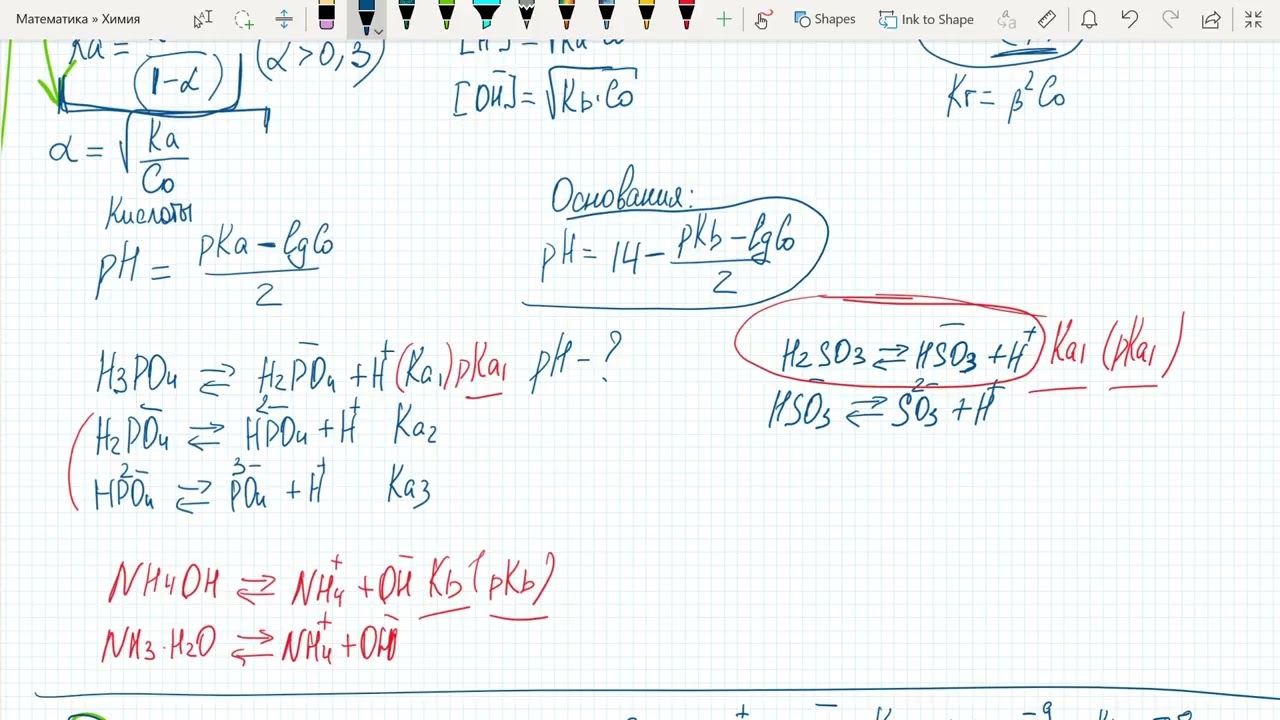 Математика » Химия
Shapes
Ink to Shape
Ka =
1-α
(α > 0,3)
[OH⁻] = √Kb·C₀
Kг = β²C₀
α = √Ka/C₀
Кислоты
pH = (pKa - lgC₀)/2
Основания:
pH = 14 - (pKb - lgC₀)/2
H₃PO₄ ⇄ H₂PO₄⁻ + H⁺ (Ka₁) pKa₁ pH - ?
H₂PO₄⁻ ⇄ HPO₄²⁻ + H⁺ Ka₂
HPO₄²⁻ ⇄ PO₄³⁻ + H⁺ Ka₃
H₂SO₃ ⇄ HSO₃⁻ + H⁺ Ka₁ (pKa₁)
HSO₃⁻ ⇄ SO₃²⁻ + H⁺
NH₄OH ⇄ NH₄⁺ + OH⁻ Kb (pKb)
NH₃·H₂O ⇄ NH₄⁺ + OH⁻